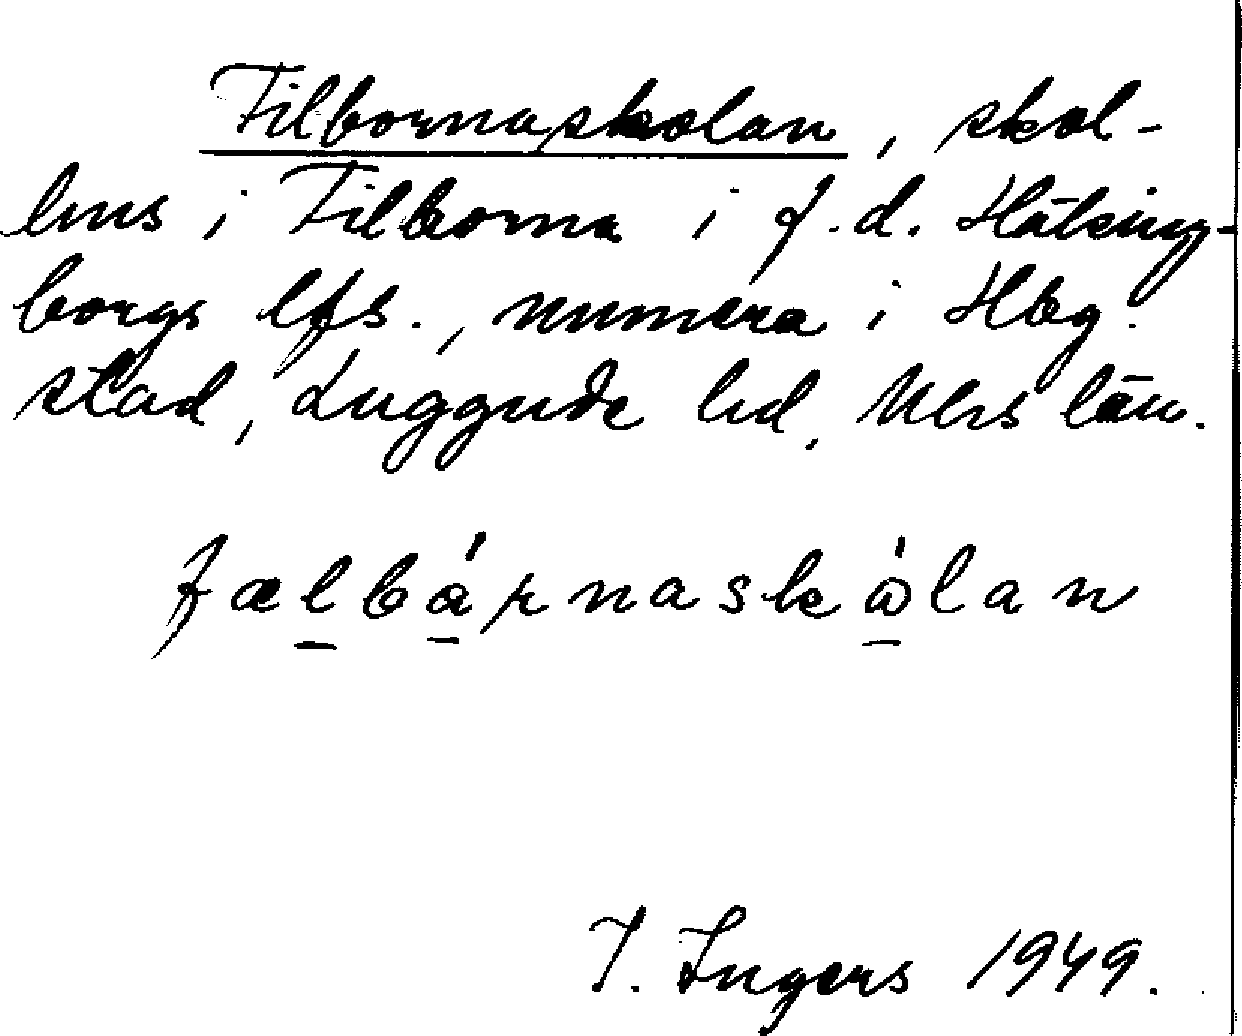 Filbornaskolan, skol-
hus i Filborna i f.d. Hälsing-
borgs lfs., numera i Hbg.
stad, Luggude hd, Mhs län.
fælbárnaskålan
I. Ingers 1949.